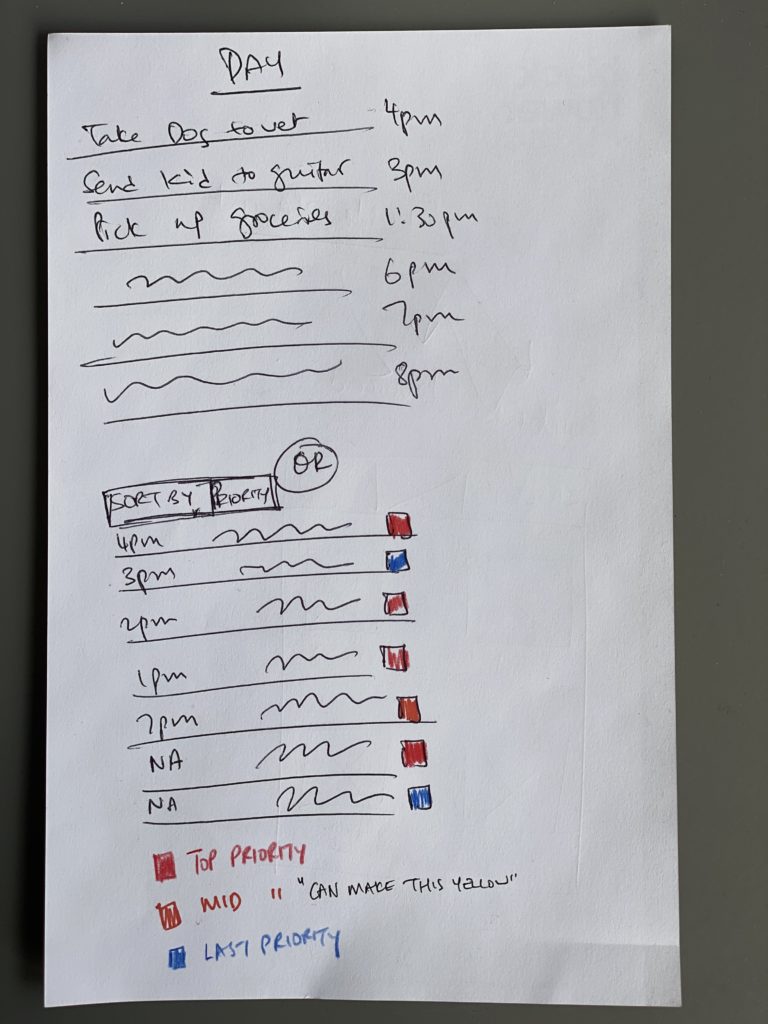 DAY
Take Dog to vet 4pm
Send kid to guitar 3pm
Pick up groceries 1:30pm
6pm
7pm
8pm
OR
SORT BY PRIORITY
4pm
3pm
2pm
1pm
7pm
NA
NA
TOP PRIORITY
MID " "CAN MAKE THIS YELLOW"
LAST PRIORITY